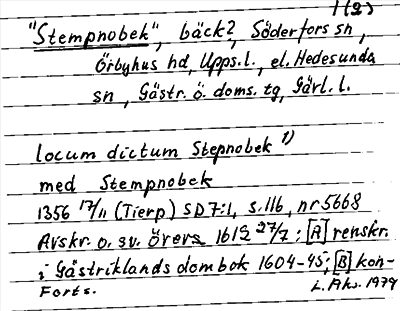 1(2)
"Stempnobek", bäck?, Söderfors sn,
Örbyhus hd, Upps.l., el. Hedesunda
sn, Gästr. ö. doms. tg, Gävl. l.
locum dictum Stepnobek 1)
med Stempnobek
1356 17/11 (Tierp) SD 7:1, s.116, nr 5668
Avskr. o. sv. övers 1612 27/7 ; [A] renskr.
i Gästriklands dombok 1604-45; [B] kon-
Forts.
L. Aks. 1979